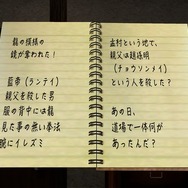 龍の模様の
鏡が奪われた!
藍帝(ランテイ)
親父を殺した男
服の背中には龍
見た事の無い拳法
腕にイレズミ
孟村という地で、
親父は趙孫明
(チョウソンメイ)
という人を殺した?
あの日、
道場で一体何が
あったんだ?